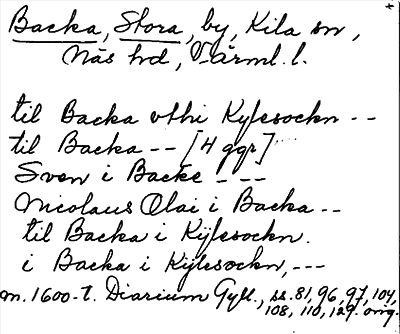 Backa, Stora, by, Kila sn,
Näs hd, Värml. l.
til Backa vthi Kylesockn --
til Backa -- [4 ggr]
Sven i Backe ---
Nicolaus Olai i Backa --
til Backa i Kijlesockn.
i Backa i Kijlesockn, ---
m. 1600-t. Diarium Gyll., ss. 81, 96, 97, 104,
108, 110, 129. orig.